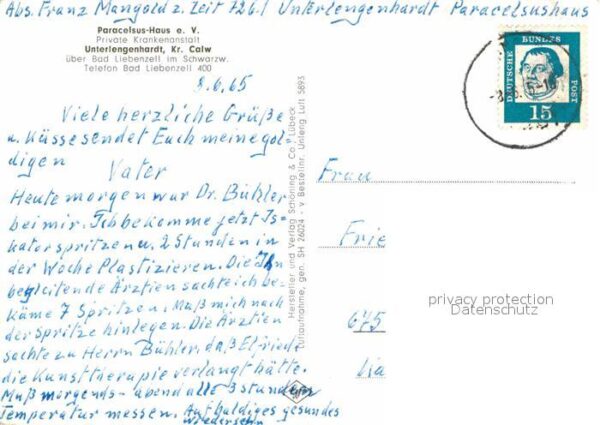 Abs. Franz Mangold z. Zeit 7261 Unterlengenhardt Paracelsushaus
Paracelsus-Haus e. V.
Private Krankenanstalt
Unterlengenhardt, Kr. Calw
über Bad Liebenzell im Schwarzw.
Telefon Bad Liebenzell 400
8.6.65
Viele herzliche Grüße
u. Küsse sendet Euch meine gol
digen Vater
Heute morgen war Dr. Bühler
bei mir. Ich bekomme jetzt Is-
katorspritzen u. 2 Stunden in
der Woche Plastizieren. Die Ihn
begleitende Ärztien sachte ich be-
käme 7 Spritzen. Muß mich nach
der Spritze hinlegen. Die Ärztien
sachte zu Herrn Bühler, daß Elfriede
die Kunsttherapie verlangt hätte.
Muß morgends- abend alle 3 stunden
Temperatur messen. Auf baldiges gesundes
wiedersehn
Herstellung und Verlag Schöning & Co., Lübeck
Luftaufnahme, gen. SH 26024 - v Bestellnr. Unteng Luft 5893
DEUTSCHE BUNDESPOST
15
Frau
Frie
675
privacy protection
Datenschutz